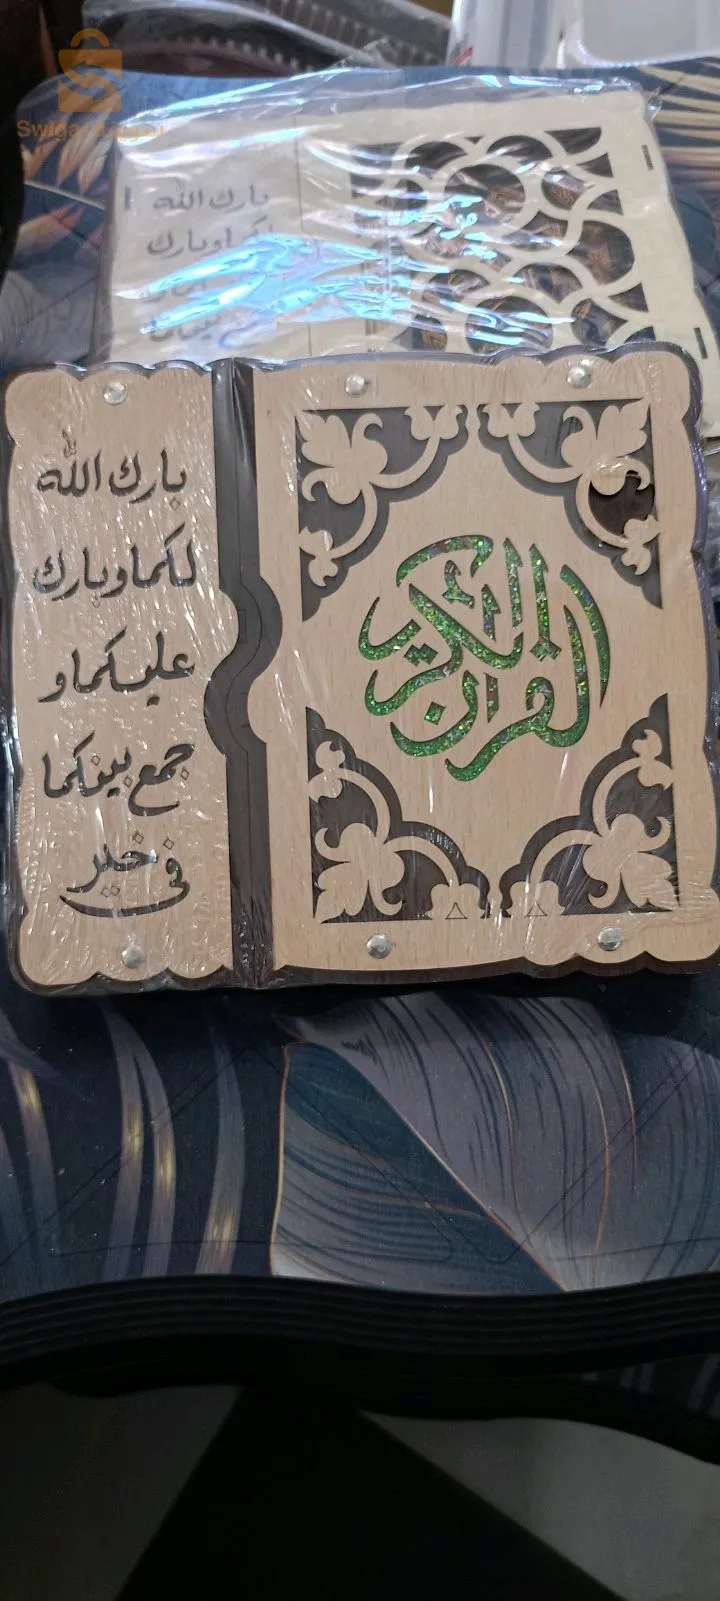 Swiga
بارك الله
لكما وبارك
بارك الله
لكما وبارك
عليكما و
جمع بينكما
في خير
القرآن الكريم